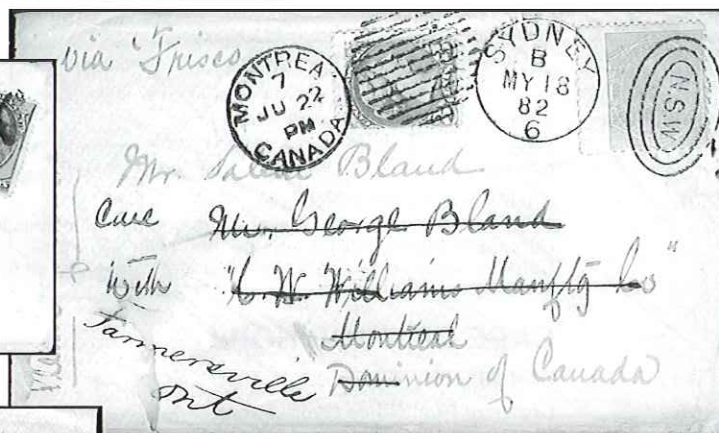 via 'Frisco
MONTREAL
7
JU 22
PM
CANADA
SYDNEY
B
MY 18
82
6
N.S.W
Mr. Bland
Care Mr. George Bland
with "C. W. Williams Manftg Co"
Montreal
Dominion of Canada
Tannersville
Ont